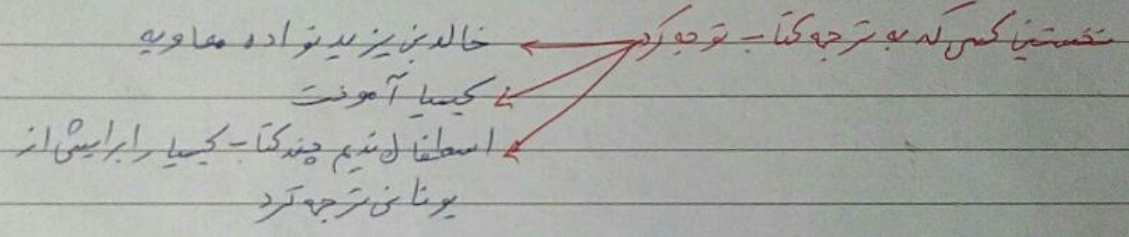 نخستین کسی که به ترجمه کتاب توجه کرد
خالدبن یزید نواده معاویه
کیمیا آموخت
اسطفان قدیم چند کتاب کیمیا را برایش از
یونانی ترجمه کرد